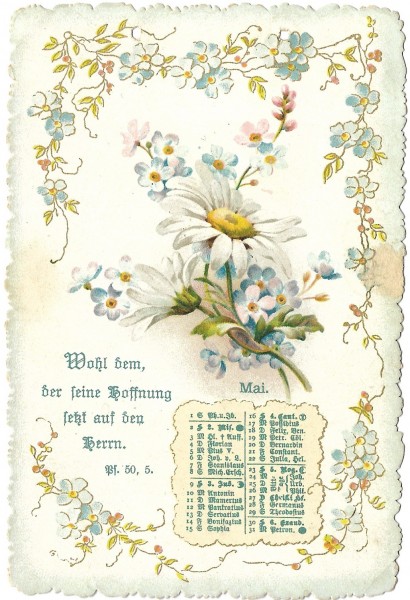 Wohl dem,
der seine Hoffnung
setzt auf den
Herrn.
Pf. 50, 5.
Mai.
1 S Ph.u.Jb.
2 S 2. Mis.
3 M
4 D Florian
5 M Pius V.
6 D Joh. v. L.
7 F Stanislaus
8 S Mich.Ersch.
9 S 3. Jub.
10 M Antonin
11 D Mamertus
12 M Pankratius
13 D Servatius
14 F Bonifazius
15 S Sophia
16 S 4. Cant.
17 M Possidius
18 D Felix, Ven.
19 M Petr. Cöl.
20 D Bernardin
21 F Constant.
22 S Julia, Hel.
23 S 5. Rog.
24 M Joh.
25 D Urb.
26 M Phil.
27 D Christi Hf.
28 F Germanus
29 S Theodosius
30 S 6. Exaud.
31 M Petron.